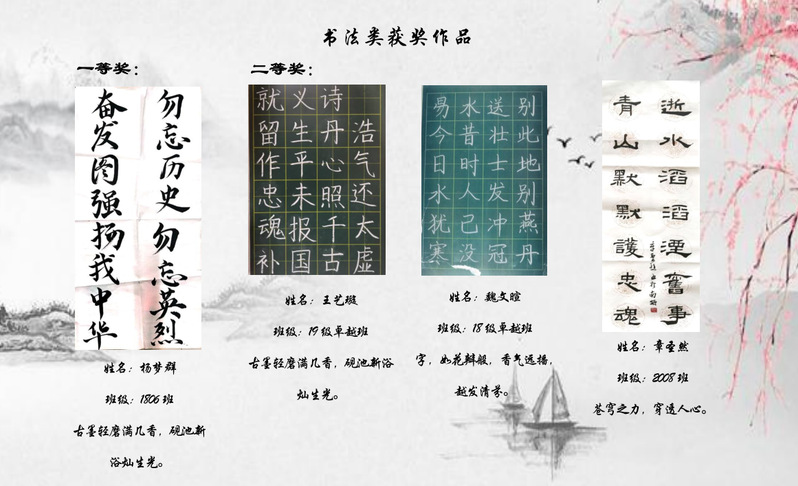 书法类获奖作品
一等奖：
勿忘历史 勿忘英烈
奋发图强扬我中华
姓名：杨梦群
班级：1806班
古墨轻磨满几香，砚池新
浴灿生光。
二等奖：
就义诗
浩气还太虚
丹心照千古
生平未报国
留作忠魂补
姓名：王艺璇
班级：19级卓越班
古墨轻磨满几香，砚池新浴
灿生光。
易水送别
此地别燕丹
壮士发冲冠
昔时人已没
今日水犹寒
姓名：魏文暄
班级：18级卓越班
字，如花瓣般，香气远播，
越发清芬。
逝水滔滔湮奮事
青山默默護忠魂
姓名：章圣然
班级：2008班
苍穹之力，穿透人心。